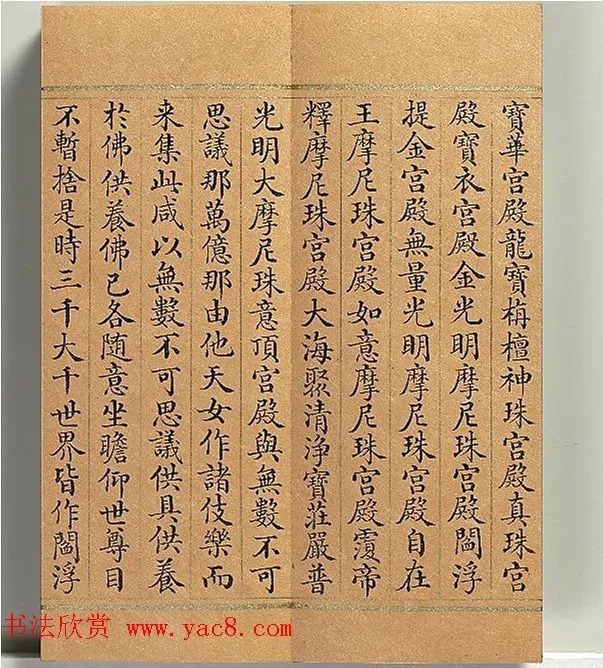 寶華宮殿龍寶栴檀神珠宮殿真珠宮
殿寶衣宮殿金光明摩尼珠宮殿閻浮
提金宮殿無量光明摩尼珠宮殿自在
王摩尼珠宮殿如意摩尼珠宮殿霣帝
釋摩尼珠宮殿大海聚清浄寶莊嚴普
光明大摩尼珠意頂宮殿與無數不可
思議那萬億那由他天女作諸伎樂而
来集此咸以無數不可思議供具供養
扵佛供養佛已各随意坐瞻仰世尊目
不暫捨是時三千大千世界皆作閻浮
书法欣赏 www.yac8.com